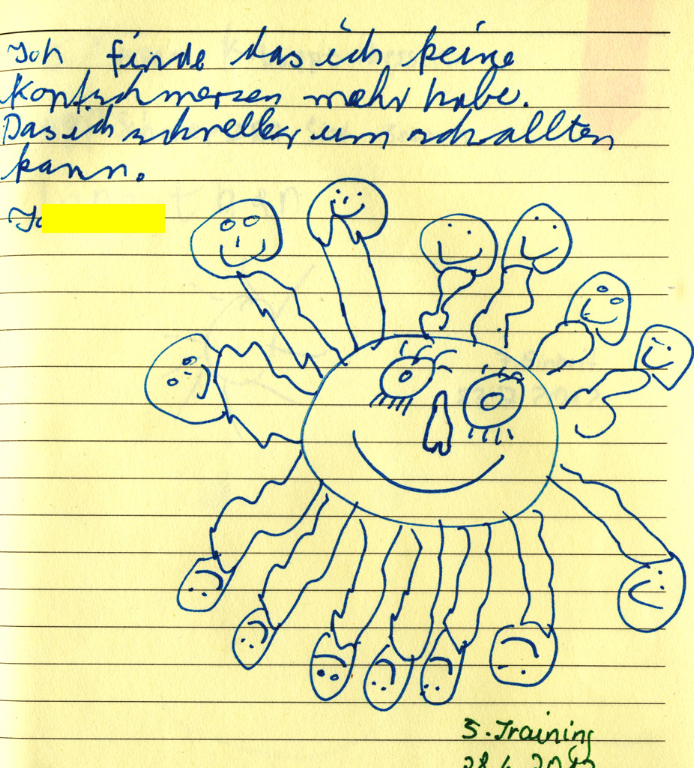 Ich finde das ich keine
Kopfschmerzen mehr habe.
Das ich schneller um schallten
kann.
5. Training